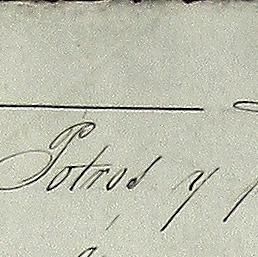 Potros y